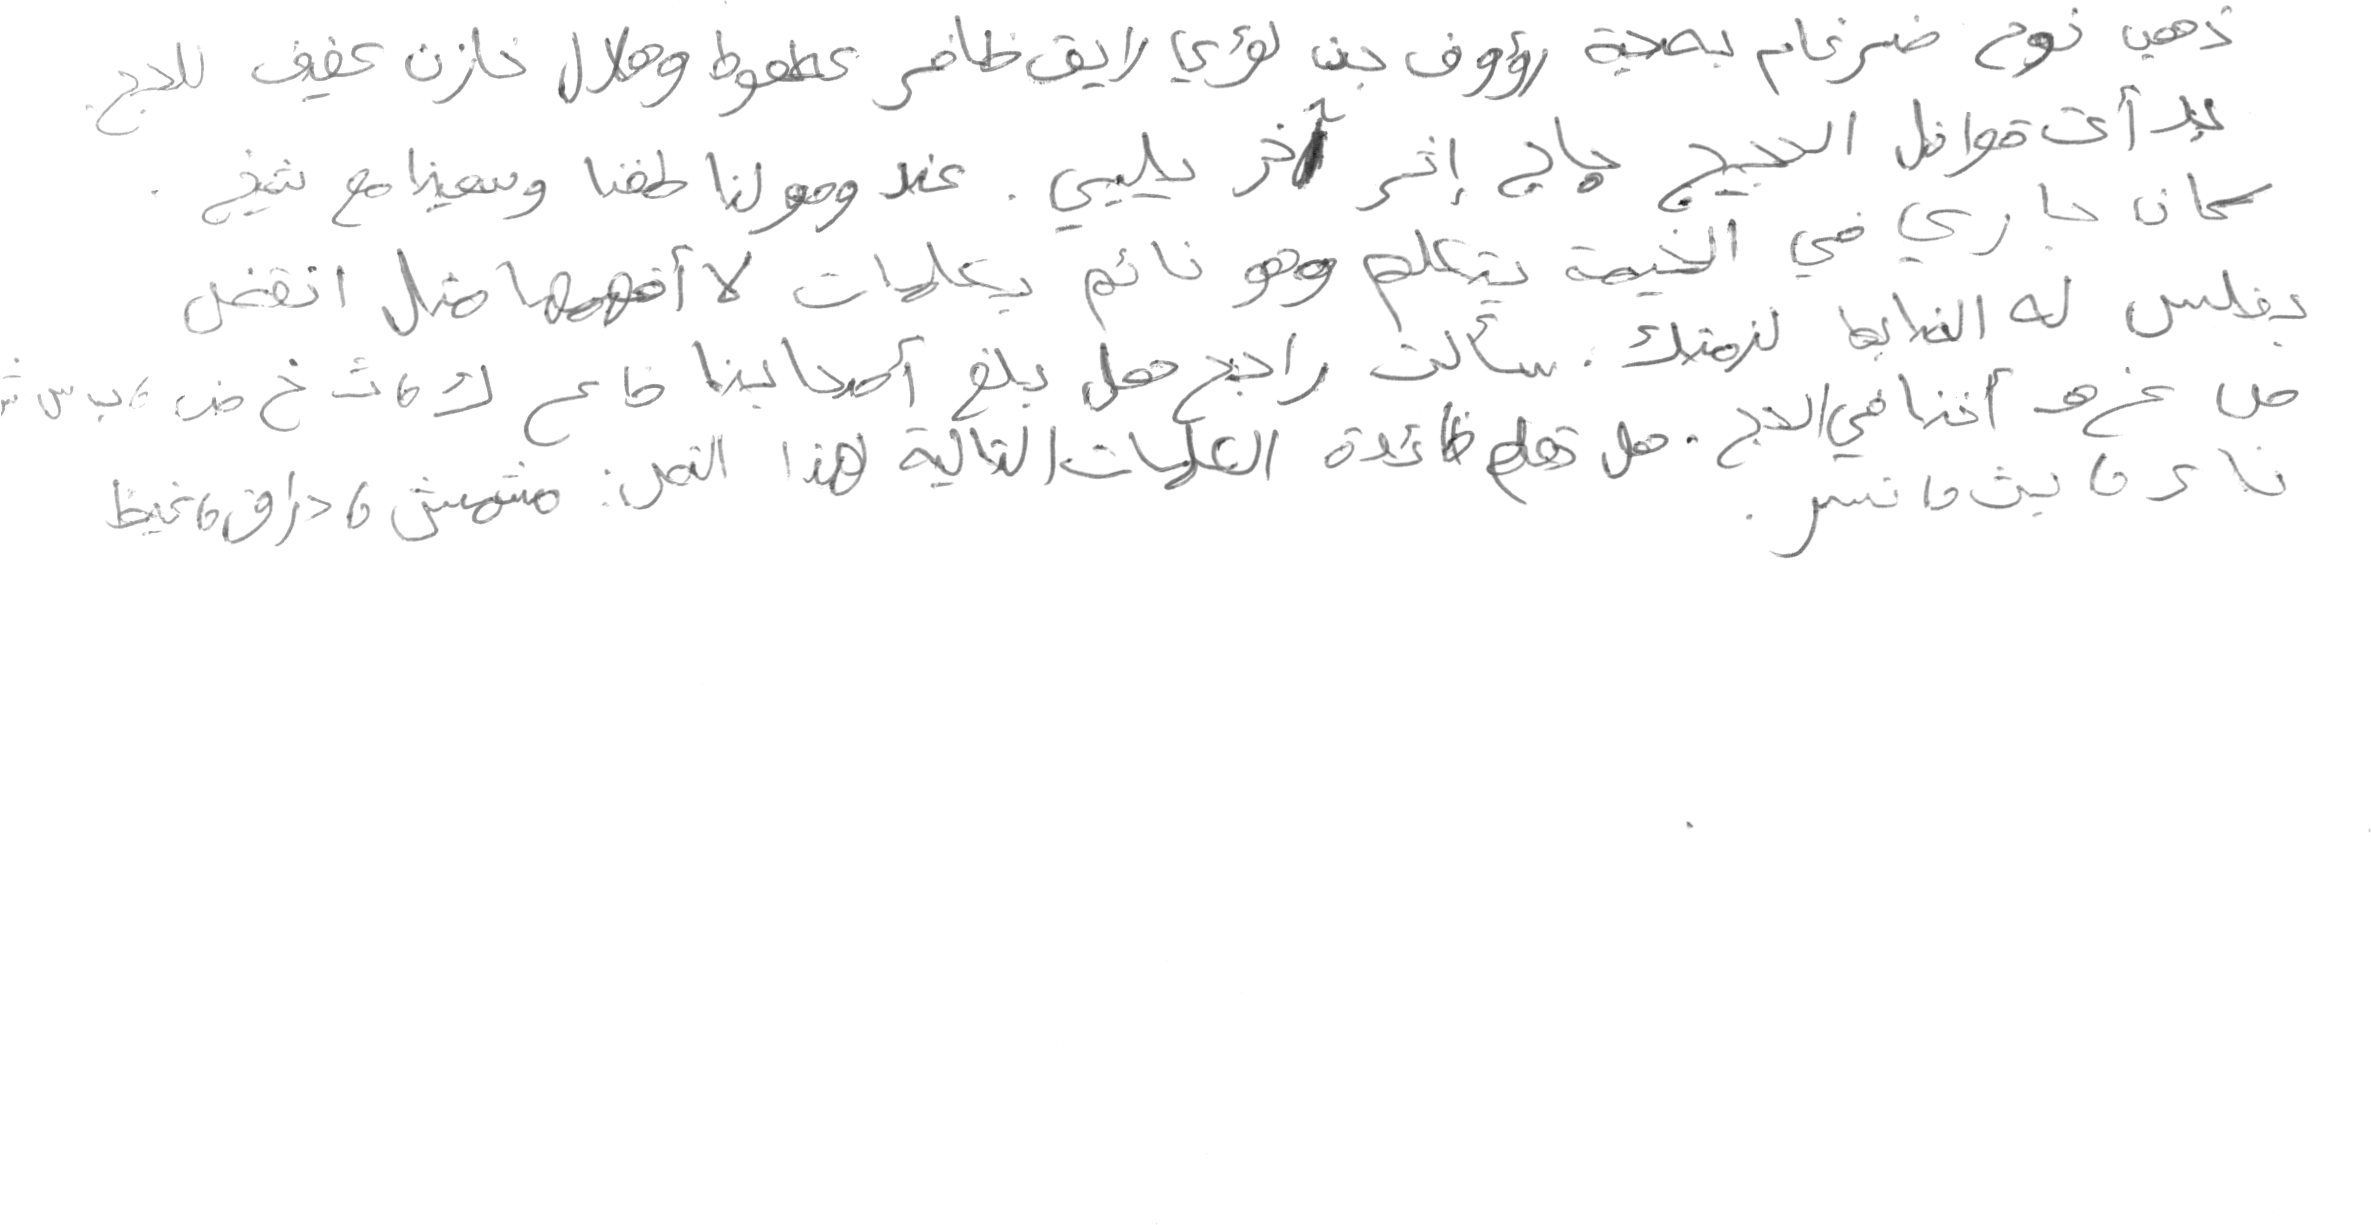 ذهب نوح ضرغام بصحبة رؤوف بن لؤي رايق ظافر عطعوط وهلال خازن عفيف للحج.
بدأت قوافل الحجيج حاج إثر آخر يلبي. عند وصولنا طفنا وسعينا مع شيخ.
كان جاري في الخيمة يتكلم وهو نائم بكلمات لا أفهمها مثل انقضل
يفلس له الضابط لزمتك. سألت راجح هل بلغ أصحابنا ظ ع ك ، ث خ ض ، ب س ش
ص غ هـ أننا في الحج. هل تعلم فائدة الكلمات التالية لهذا النص: مشمش ، دراق ، غيظ
ناى ، بث ، نسر.